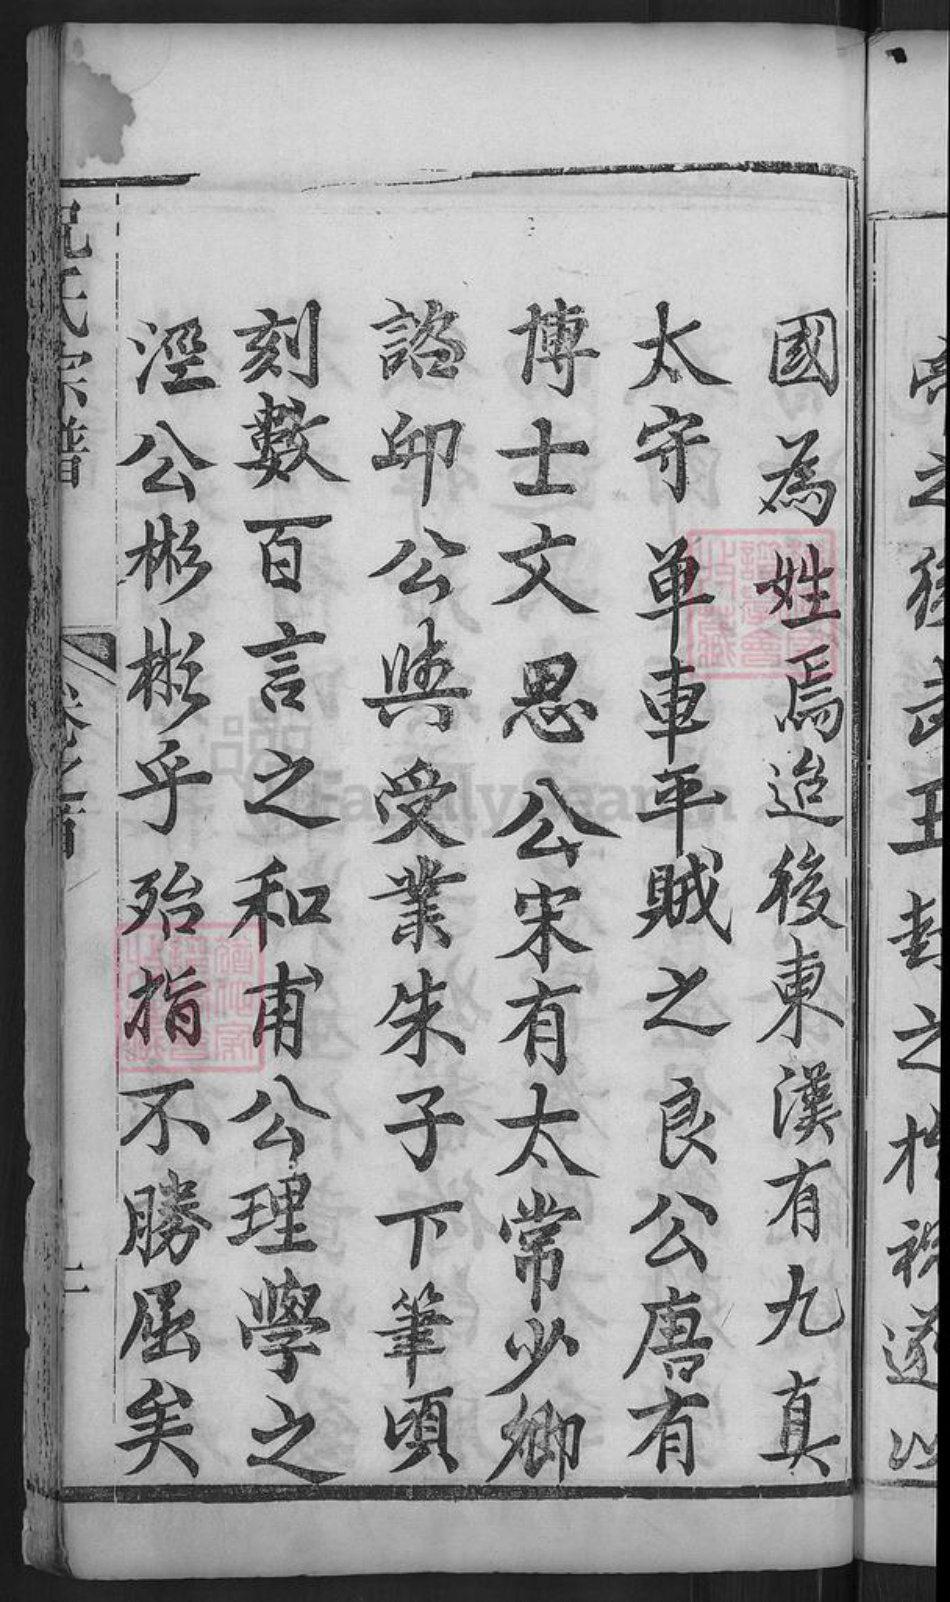 國為姓焉迨後東漢有九真
太守单車平賊之良公唐有
博士文思公宋有太常少卿
諮印公與受業朱子下筆頃
刻數百言之和甫公理學之
涇公彬彬乎殆指不勝屈矣
祝氏宗譜
卷之首